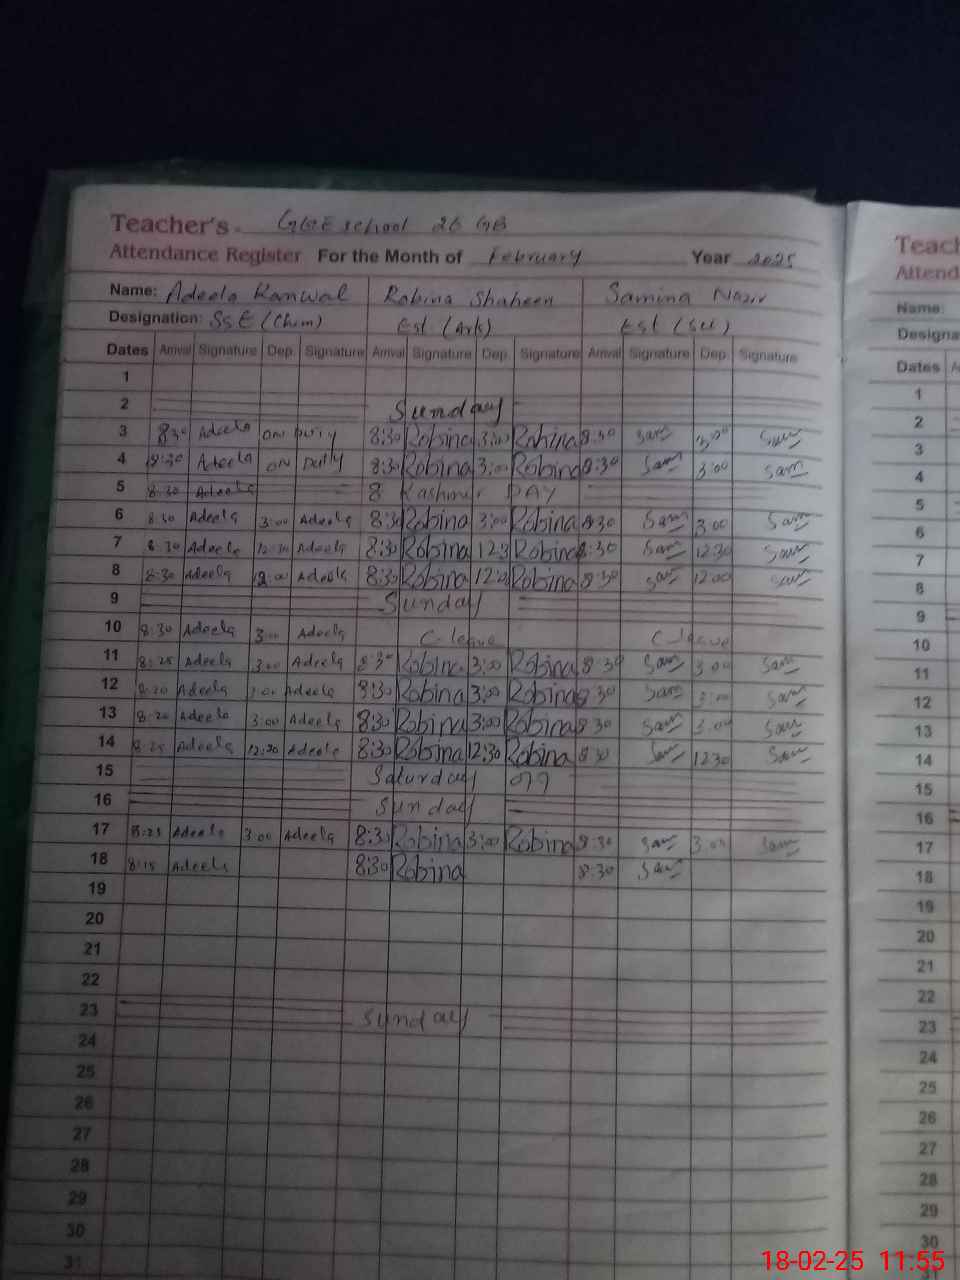 Teacher's GGE school 26 GB
Attendance Register For the Month of February Year 2025
Name: Adeela Kanwal Robina Shaheen Samina Nazir
Designation: SSE (Chem) Est (Arts) Est (Sci)
Dates Arrival Signature Dep. Signature Arrival Signature Dep. Signature Arrival Signature Dep. Signature
1
2 Sunday
3 8:30 Adeela on Duty 8:30 Robina 3:00 Robina 8:30 Sam 3:00 Sam
4 8:30 Adeela on Duty 8:30 Robina 3:00 Robina 8:30 Sam 3:00 Sam
5 8:30 Adeela 8 Kashmir DAY
6 8:30 Adeela 3:00 Adeela 8:30 Robina 3:00 Robina 8:30 Sam 3:00 Sam
7 8:30 Adeela 12:30 Adeela 8:30 Robina 12:3 Robina 8:30 Sam 12:30 Sam
8 8:30 Adeela 12:00 Adeela 8:30 Robina 12:0 Robina 8:30 Sam 12:00 Sam
9 Sunday
10 8:30 Adeela 3:00 Adeela C-leave C leave
11 8:25 Adeela 3:00 Adeela 8:30 Robina 3:00 Robina 8:30 Sam 3:00 Sam
12 8:20 Adeela 3:00 Adeela 8:30 Robina 3:00 Robina 8:30 Sam 3:00 Sam
13 8:20 Adeela 3:00 Adeela 8:30 Robina 3:00 Robina 8:30 Sam 3:00 Sam
14 8:25 Adeela 12:30 Adeela 8:30 Robina 12:30 Robina 8:30 Sam 12:30 Sam
15 Saturday off
16 Sunday
17 8:25 Adeela 3:00 Adeela 8:30 Robina 3:00 Robina 8:30 Sam 3:00 Sam
18 8:15 Adeela 8:30 Robina 8:30 Sam
19
20
21
22
23 Sunday
24
25
26
27
28
29
30
31
Teach
Attend
Name:
Designa
Dates
1
2
3
4
5
6
7
8
9
10
11
12
13
14
15
16
17
18
19
20
21
22
23
24
25
26
27
28
29
30
18-02-25 11:55